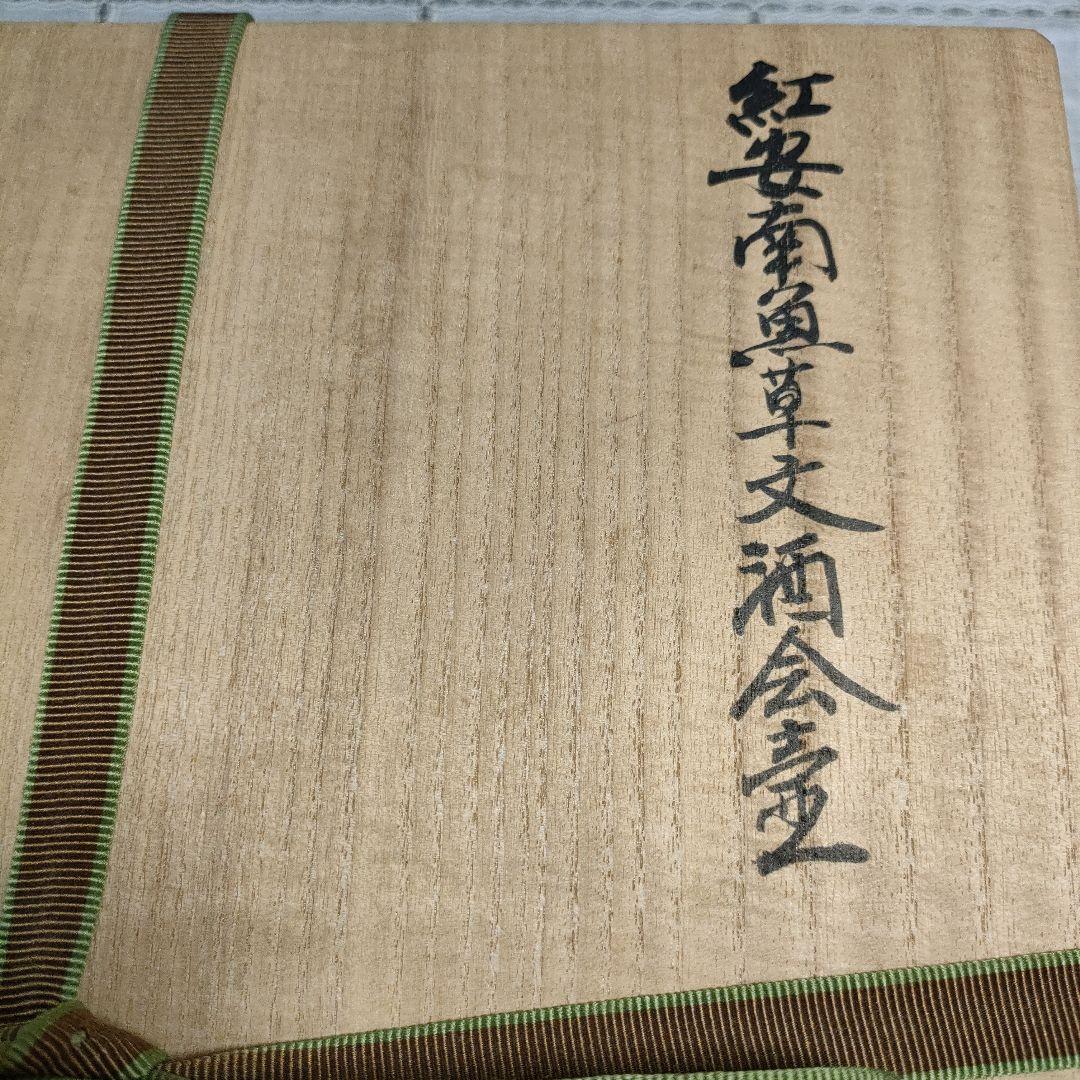 紅安南魚草文酒会壷